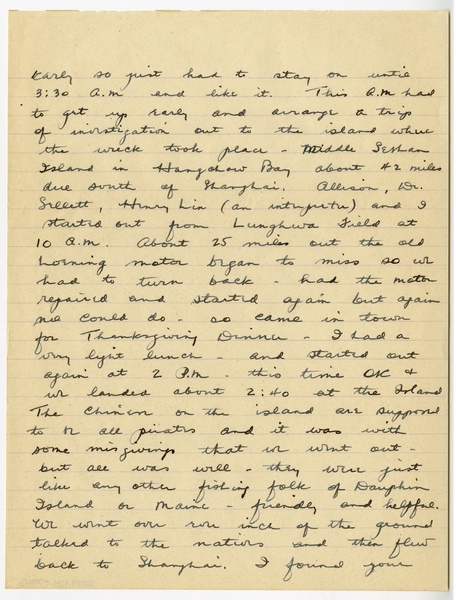 Early so just had to stay on until
3:30 A.M and like it. This A.M had
to get up early and arrange a trip
of investigation out to the island where
the wreck took place - Middle
Island in Hangchow Bay about 42 miles
due south of Shanghai. Allison, Dr.
Sellett, Henry Lin (an interpreter) and I
started out from Lunghwa Field at
10 A.M. About 25 miles out the old
horning motor began to miss so we
had to turn back - had the motor
repaired and started again but again
no could do - so came in town
for Thanksgiving Dinner - I had a
very light lunch - and started out
again at 2 P.M - this time OK &
we landed about 2:40 at the Island
The Chinese on the island are supposed
to be all pirates and it was with
some misgivings that we went out -
but all was well - they were just
like any other fishing folk of Dauphin
Island or Maine - friendly and helpful.
We went over every inch of the ground
talked to the natives and then flew
back to Shanghai. I found your